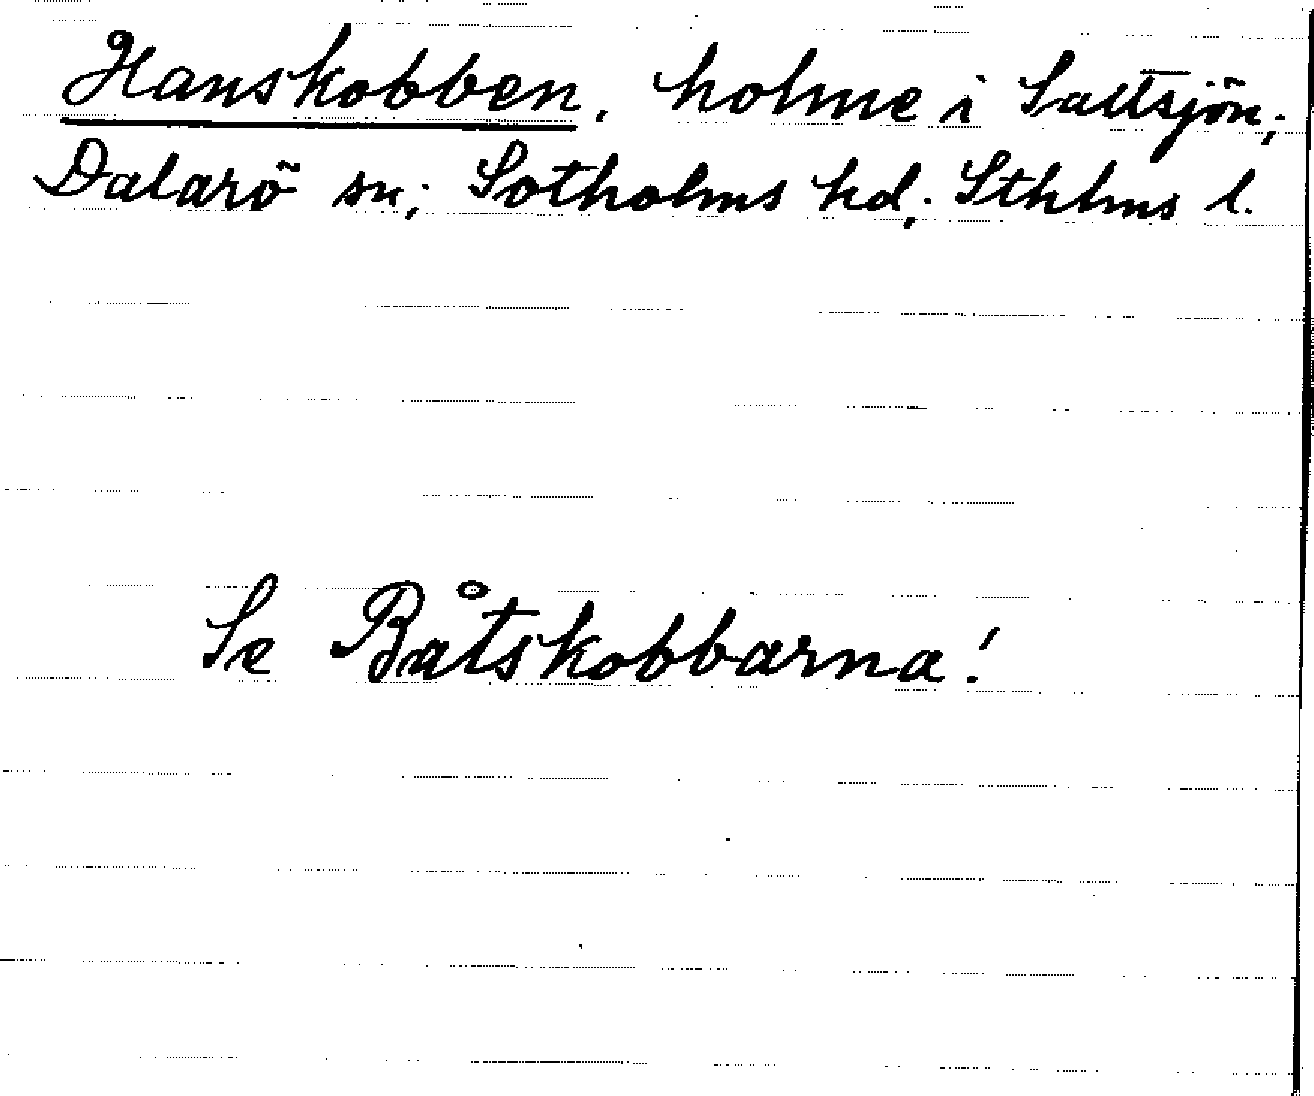 Hanskobben, holme i Saltsjön;
Dalarö sn; Sotholms hd; Sthlms l.
Se Båtskobbarna!